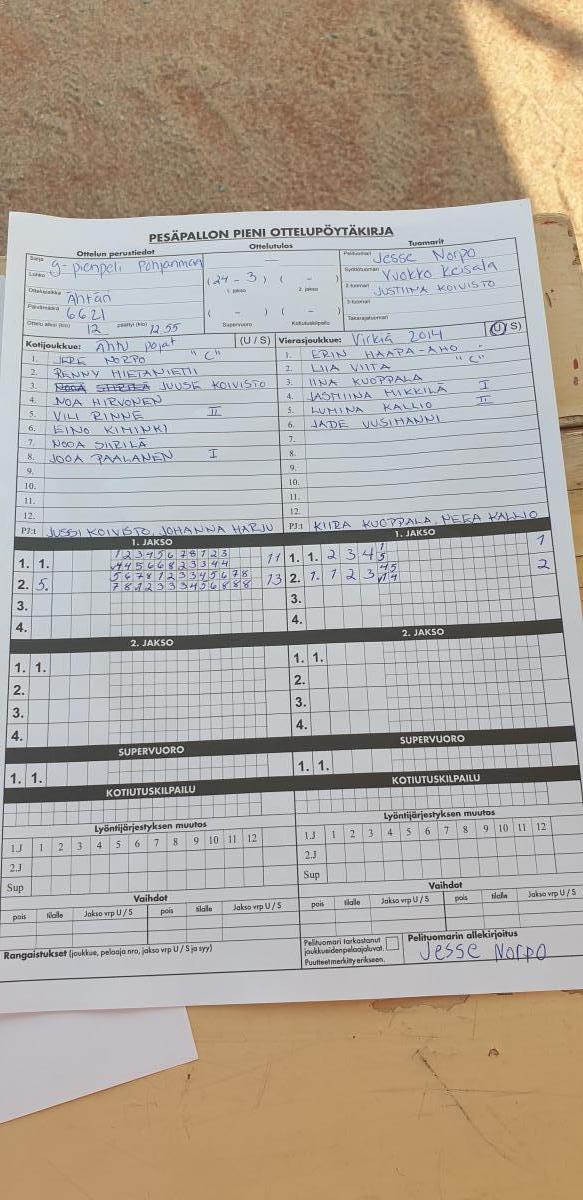 PESÄPALLON PIENI OTTELUPÖYTÄKIRJA
Ottelun perustiedot
Ottelutulos
Tuomarit
Sarja g-pienpeli Pohjanmaa
Lohko
Ottelupaikka Ähtäri
Päivämäärä 6 6 21
Ottelu alkoi (klo) 12 päättyi (klo) 12.55
(24 - 3) ( - )
1. jakso 2. jakso
( - ) ( - )
Supervuoro Kotiutuskilpailu
Pelituomari Jesse Norpo
Syöttötuomari Vuokko Keisala
2-tuomari JUSTIINA KOIVISTO
3-tuomari
Takarajatuomari
Kotijoukkue: Ähtu pojat (U / S)
1. JERE NORPO "C"
2. BENNY HIETANIETTI
3. NOOA SIIRILÄ JUUSE KOIVISTO
4. NOA HIRVONEN
5. VILI RINNE II
6. EINO KIMINKI
7. NOOA SIIRILÄ
8. JOOA PAALANEN I
9.
10.
11.
12.
PJ:t JUSSI KOIVISTO, JOHANNA HARJU
Vierasjoukkue: Virkiä 2014 (U/ S)
1. ERIN HAAPA-AHO
2. LIIA VIITA "C"
3. IINA KUOPPALA
4. JASMIINA MIKKILÄ I
5. LUMINA KALLIO II
6. JADE UUSIMANNI
7.
8.
9.
10.
11.
12.
PJ:t KIIRA KUOPPALA, MERA KALLIO
1. JAKSO
1. 1. 1 2 3 4 5 6 7 8 1 2 3 11
4 4 5 6 6 8 2 3 3 4 4
2. 5. 5 6 7 8 1 2 3 3 4 5 6 7 8 13
7 8 1 2 3 3 3 4 5 6 8 8 8
3.
4.
1. JAKSO
1. 1. 2 3 4 5 1
1
2. 1. 1 2 3 4 5 2
1 4
3.
4.
2. JAKSO
1. 1.
2.
3.
4.
2. JAKSO
1. 1.
2.
3.
4.
SUPERVUORO
1. 1.
SUPERVUORO
1. 1.
KOTIUTUSKILPAILU
KOTIUTUSKILPAILU
Lyöntijärjestyksen muutos
1.J 1 2 3 4 5 6 7 8 9 10 11 12
2.J
Sup
Lyöntijärjestyksen muutos
1.J 1 2 3 4 5 6 7 8 9 10 11 12
2.J
Sup
Vaihdot
pois tilalle Jakso vrp U / S pois tilalle Jakso vrp U / S
Vaihdot
pois tilalle Jakso vrp U / S pois tilalle Jakso vrp U / S
Rangaistukset (joukkue, pelaaja nro, jakso vrp U / S ja syy)
Pelituomari tarkastanut
joukkueiden pelaajaluvat.
Puutteet merkitty erikseen.
Pelituomarin allekirjoitus
Jesse Norpo